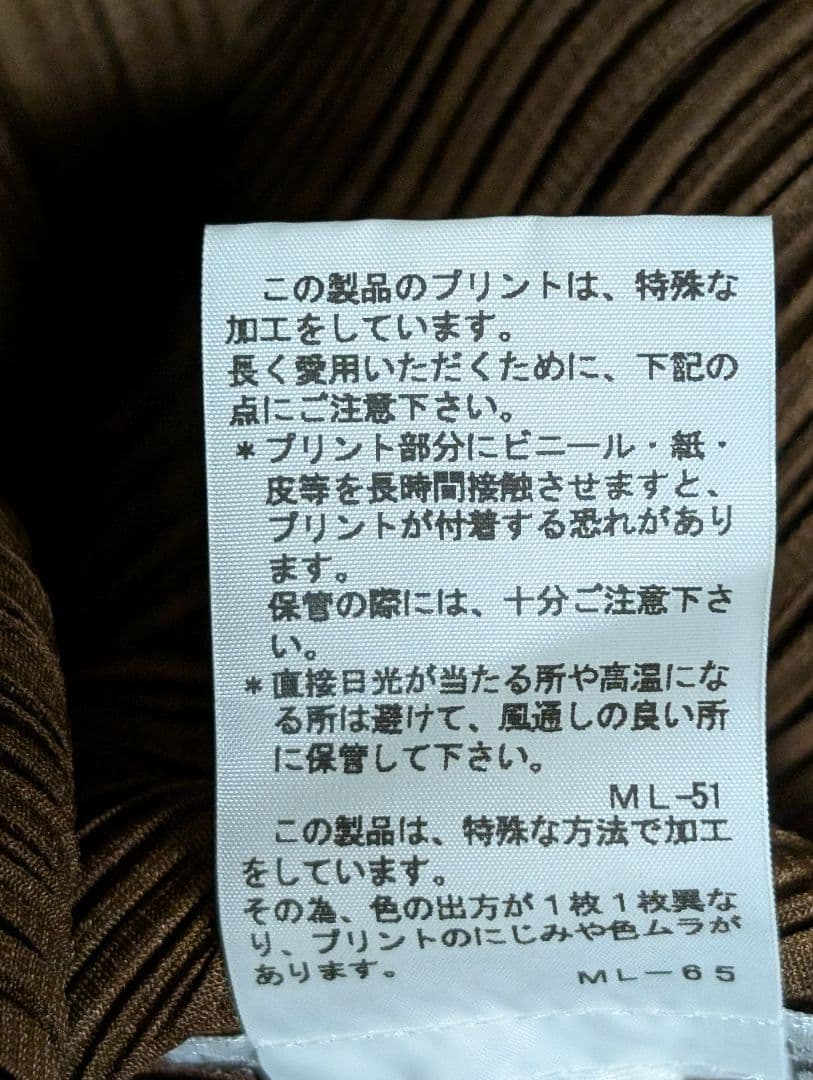 この製品のプリントは、特殊な
加工をしています。
長く愛用いただくために、下記の
点にご注意下さい。
＊プリント部分にビニール・紙・
皮等を長時間接触させますと、
プリントが付着する恐れがあり
ます。
保管の際には、十分ご注意下さ
い。
＊直接日光が当たる所や高温にな
る所は避けて、風通しの良い所
に保管して下さい。
ＭＬ-51
この製品は、特殊な方法で加工
をしています。
その為、色の出方が１枚１枚異な
り、プリントのにじみや色ムラが
あります。
ＭＬ－６５